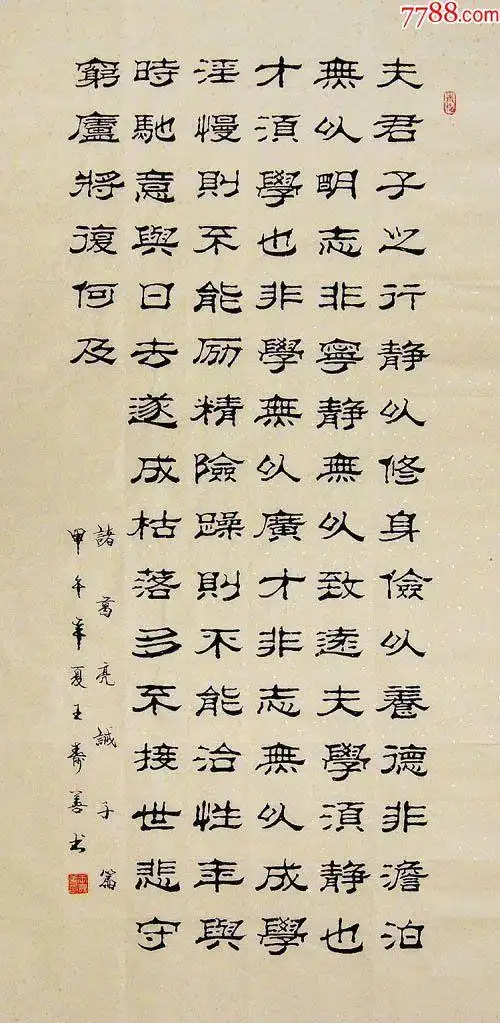 7788.com
夫君子之行静以修身儉以養德非澹泊
無以明志非寧静無以致遠夫學須静也
才須學也非學無以廣才非志無以成學
淫慢則不能励精險躁則不能治性年與
時馳意與日去遂成枯落多不接世悲守
窮廬將復何及
諸葛亮誡子篇
甲午年夏王壽善书